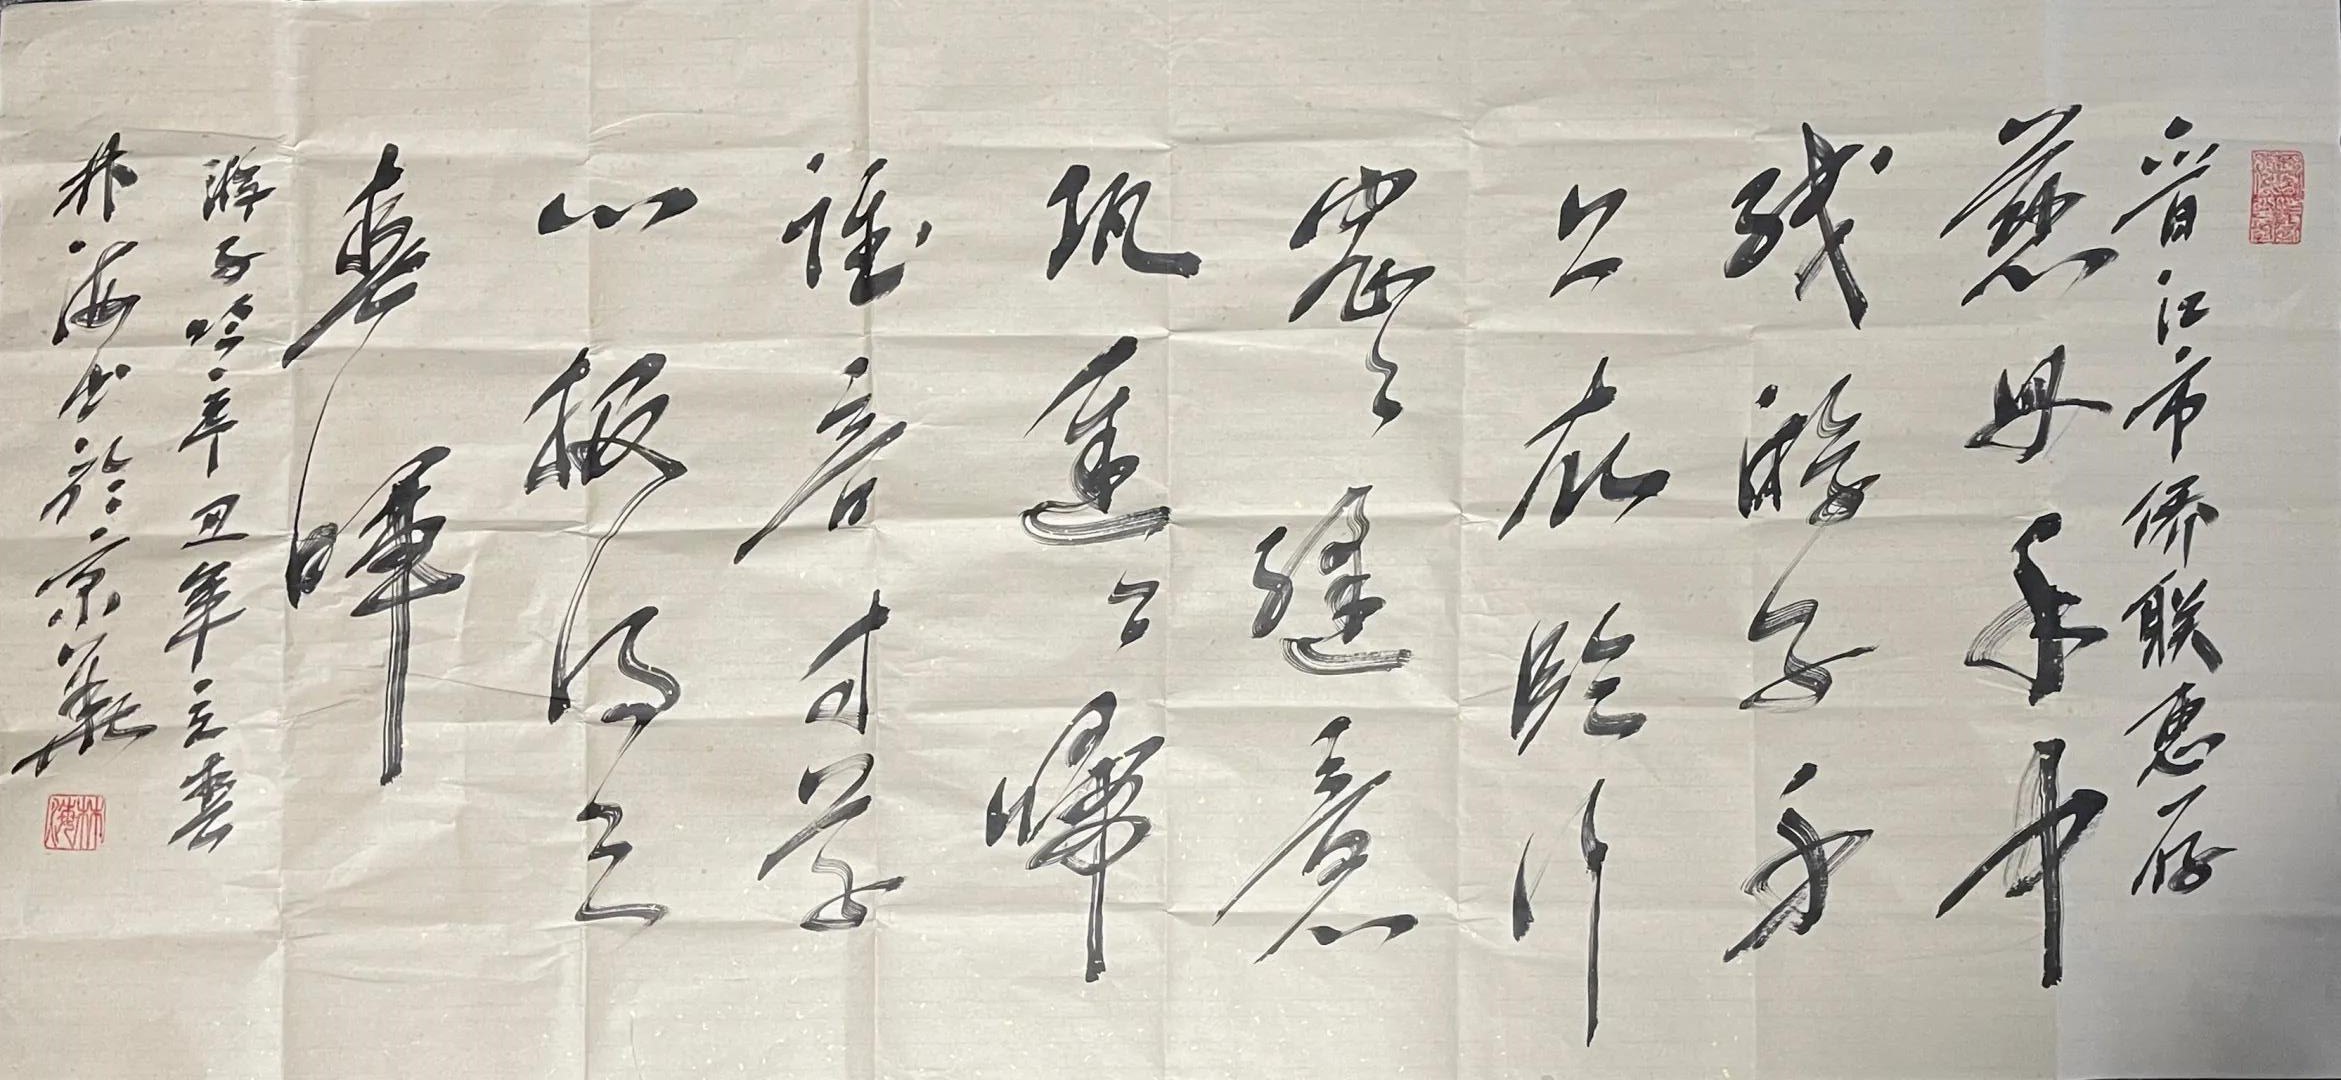 晋江市侨联惠存
慈母手中
线游子身
上衣临行
密密缝意
恐迟迟归
谁言寸草
心报得三
春晖
游子吟辛丑年立春
林海书於京華
林海